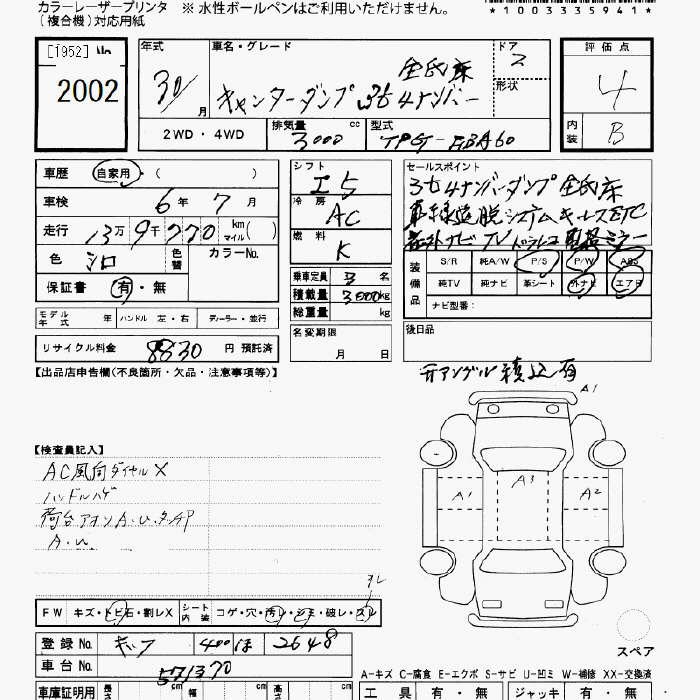 カラーレーザープリンタ ※ 水性ボールペンはご利用いただけません。
(複合機)対応用紙
*1003335941*
[1952] No
2002
年式 車名・グレード ドア 評価点
30/ 月 全低床 2 4
キャンターダンプ 3t 4ナンバー 形状
2WD・4WD 排気量 3000 cc 型式 TPG-FBA60 内装 B
車歴 自家用・( )
車検 6年 7月
走行 13万 9千 770 km マイル( )
色 シロ 色替 カラーNo.
保証書 有・無
シフト I 5
冷房 AC
燃料 K
乗車定員 3 名
積載量 3000 kg
総重量 kg
セールスポイント
3t 4ナンバーダンプ 全低床
車線逸脱システム キーレス ETC
社外ナビ TV ドラレコ 電格ミラー
装備品 S/R 純A/W P/S P/W ABS
純TV 純ナビ 革シート 外ナビ エアB
ナビ型番:
モデル年式 年 ハンドル 左・右 ディーラー・並行
名変期限 月 日
後日品
リサイクル料金 8830 円 預託済
【出品店申告欄(不良箇所・欠品・注意事項等)】
アングル 積込 有
A1
【検査員記入】
AC風向ダイヤルX
ハンドルハゲ
荷台アオリA.U.タッチP
A.U.
A1 A3 A2
スレ
FW キズ・トビ石・割レX シート内装 コゲ・穴・汚レ・シミ・破レ・スレ
登録No. 400 ほ 2648
車台No. 571370
スペア
A-キズ C-腐食 E-エクボ S-サビ U-凹ミ W-補修 XX-交換済
車庫証明用 長さ cm 幅 cm 高さ cm
工具 有・無 ジャッキ 有・無